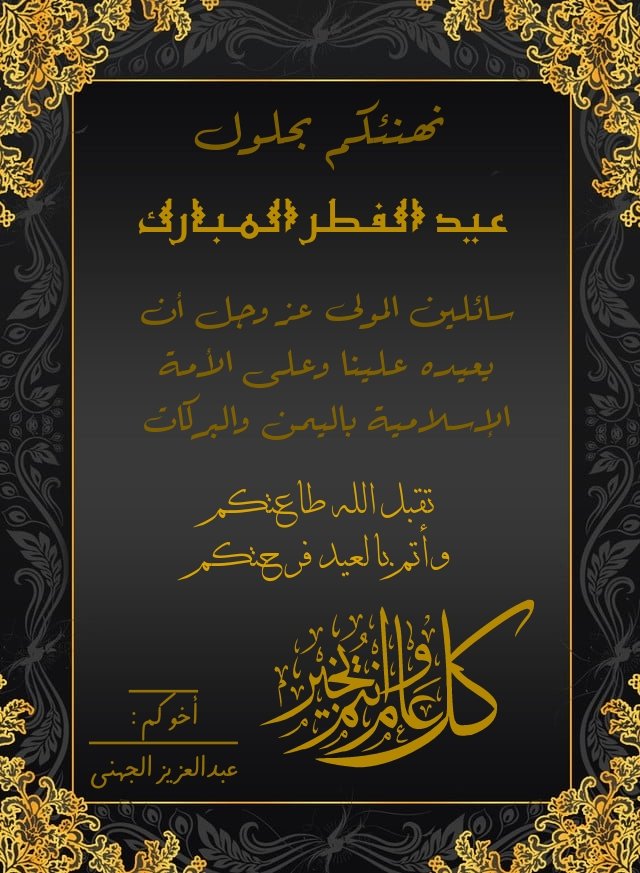 نهنئكم بحلول
عيد الفطر المبارك
سائلين المولى عز وجل أن
يعيده علينا وعلى الأمة
الإسلامية باليمن والبركات
تقبل الله طاعتكم
وأتم بالعيد فرحتكم
كل عام وانتم بخير
أخوكم :
عبدالعزيز الجهني